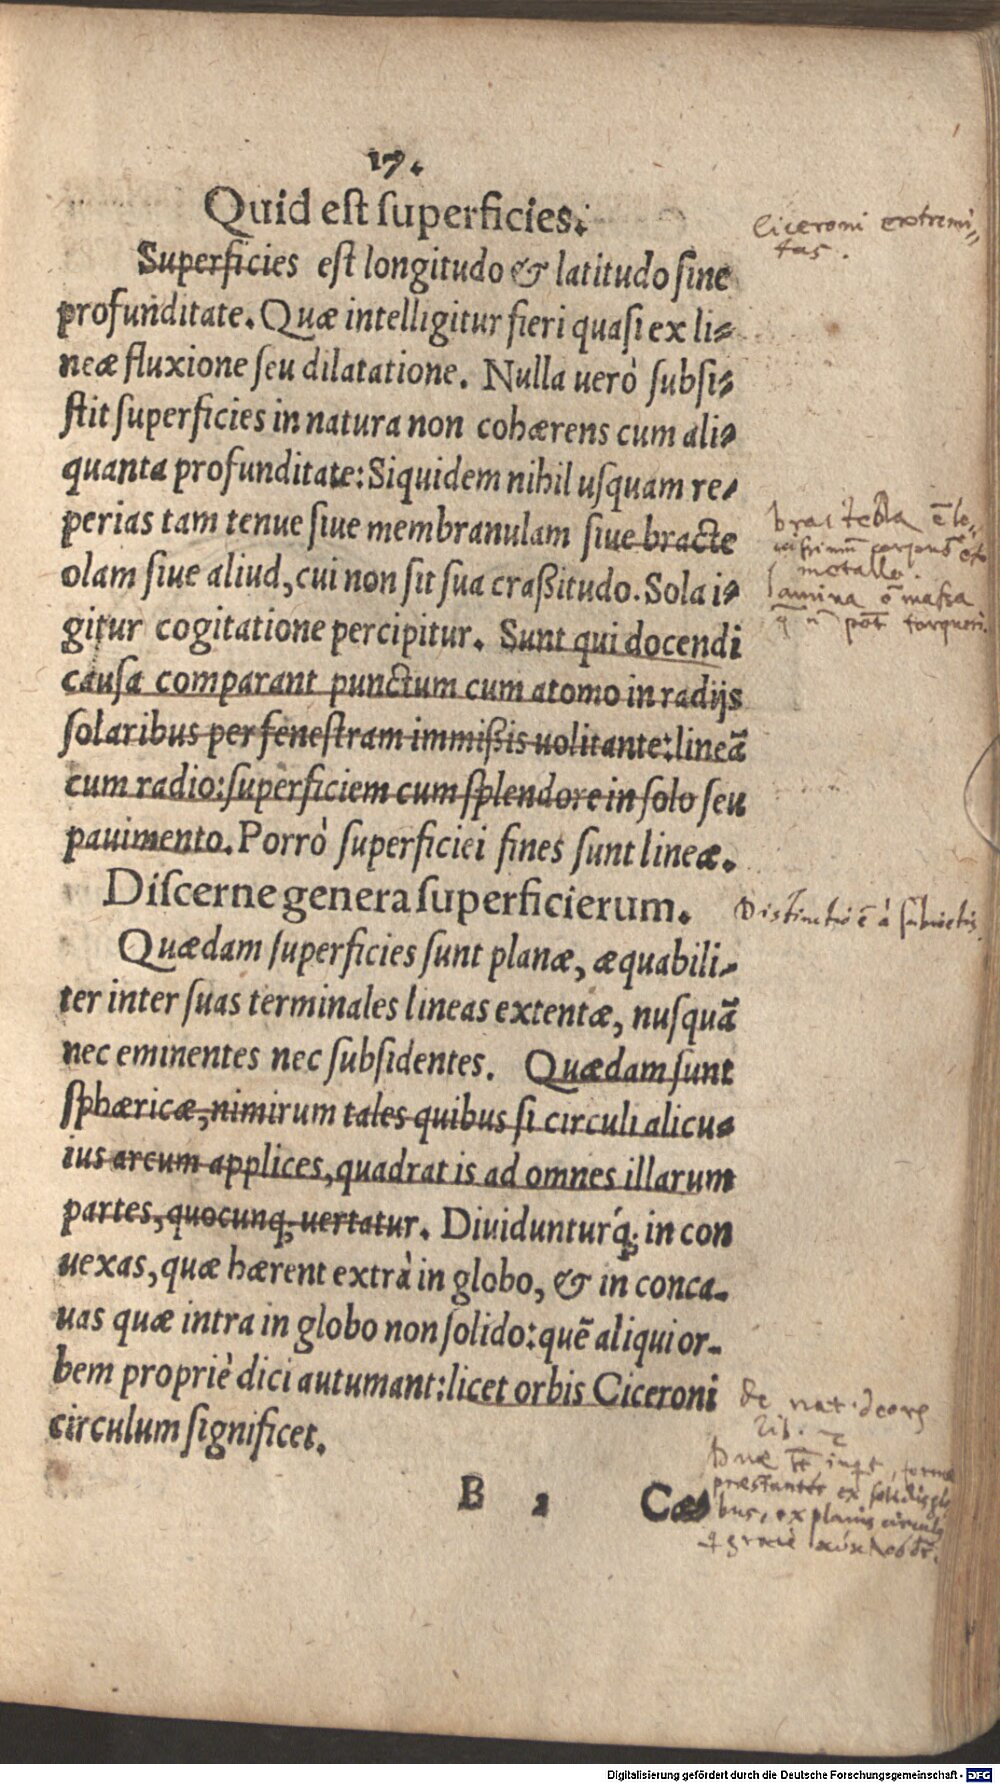 17.
Quid est superficies.
Superficies est longitudo & latitudo sine
profunditate. Quæ intelligitur fieri quasi ex li-
neæ fluxione seu dilatatione. Nulla uerò subsi-
stit superficies in natura non cohærens cum ali-
quanta profunditate: Siquidem nihil usquam re-
perias tam tenue siue membranulam siue bracte
olam siue aliud, cui non sit sua craßitudo. Sola i-
gitur cogitatione percipitur. Sunt qui docendi
causa comparant punctum cum atomo in radijs
solaribus per fenestram immißis uolitante: lineã
cum radio: superficiem cum splendore in solo seu
pauimento. Porrò superficiei fines sunt lineæ.
Discerne genera superficierum.
Quædam superficies sunt planæ, æquabili-
ter inter suas terminales lineas extentæ, nusquã
nec eminentes nec subsidentes. Quædam sunt
sphæricæ, nimirum tales quibus si circuli alicu-
ius arcum applices, quadrat is ad omnes illarum
partes, quocunq; uertatur. Diuidunturq́; in con
uexas, quæ hærent extrà in globo, & in conca-
uas quæ intra in globo non solido: quẽ aliqui or-
bem propriè dici autumant: licet orbis Ciceroni
circulum significet.
B 2 Cæ
Ciceroni extremi-
tas.
bracteola ē
metallo.
lamina ē massa
Distinctio ē à subiectis.
de nat. deor
lib. 2